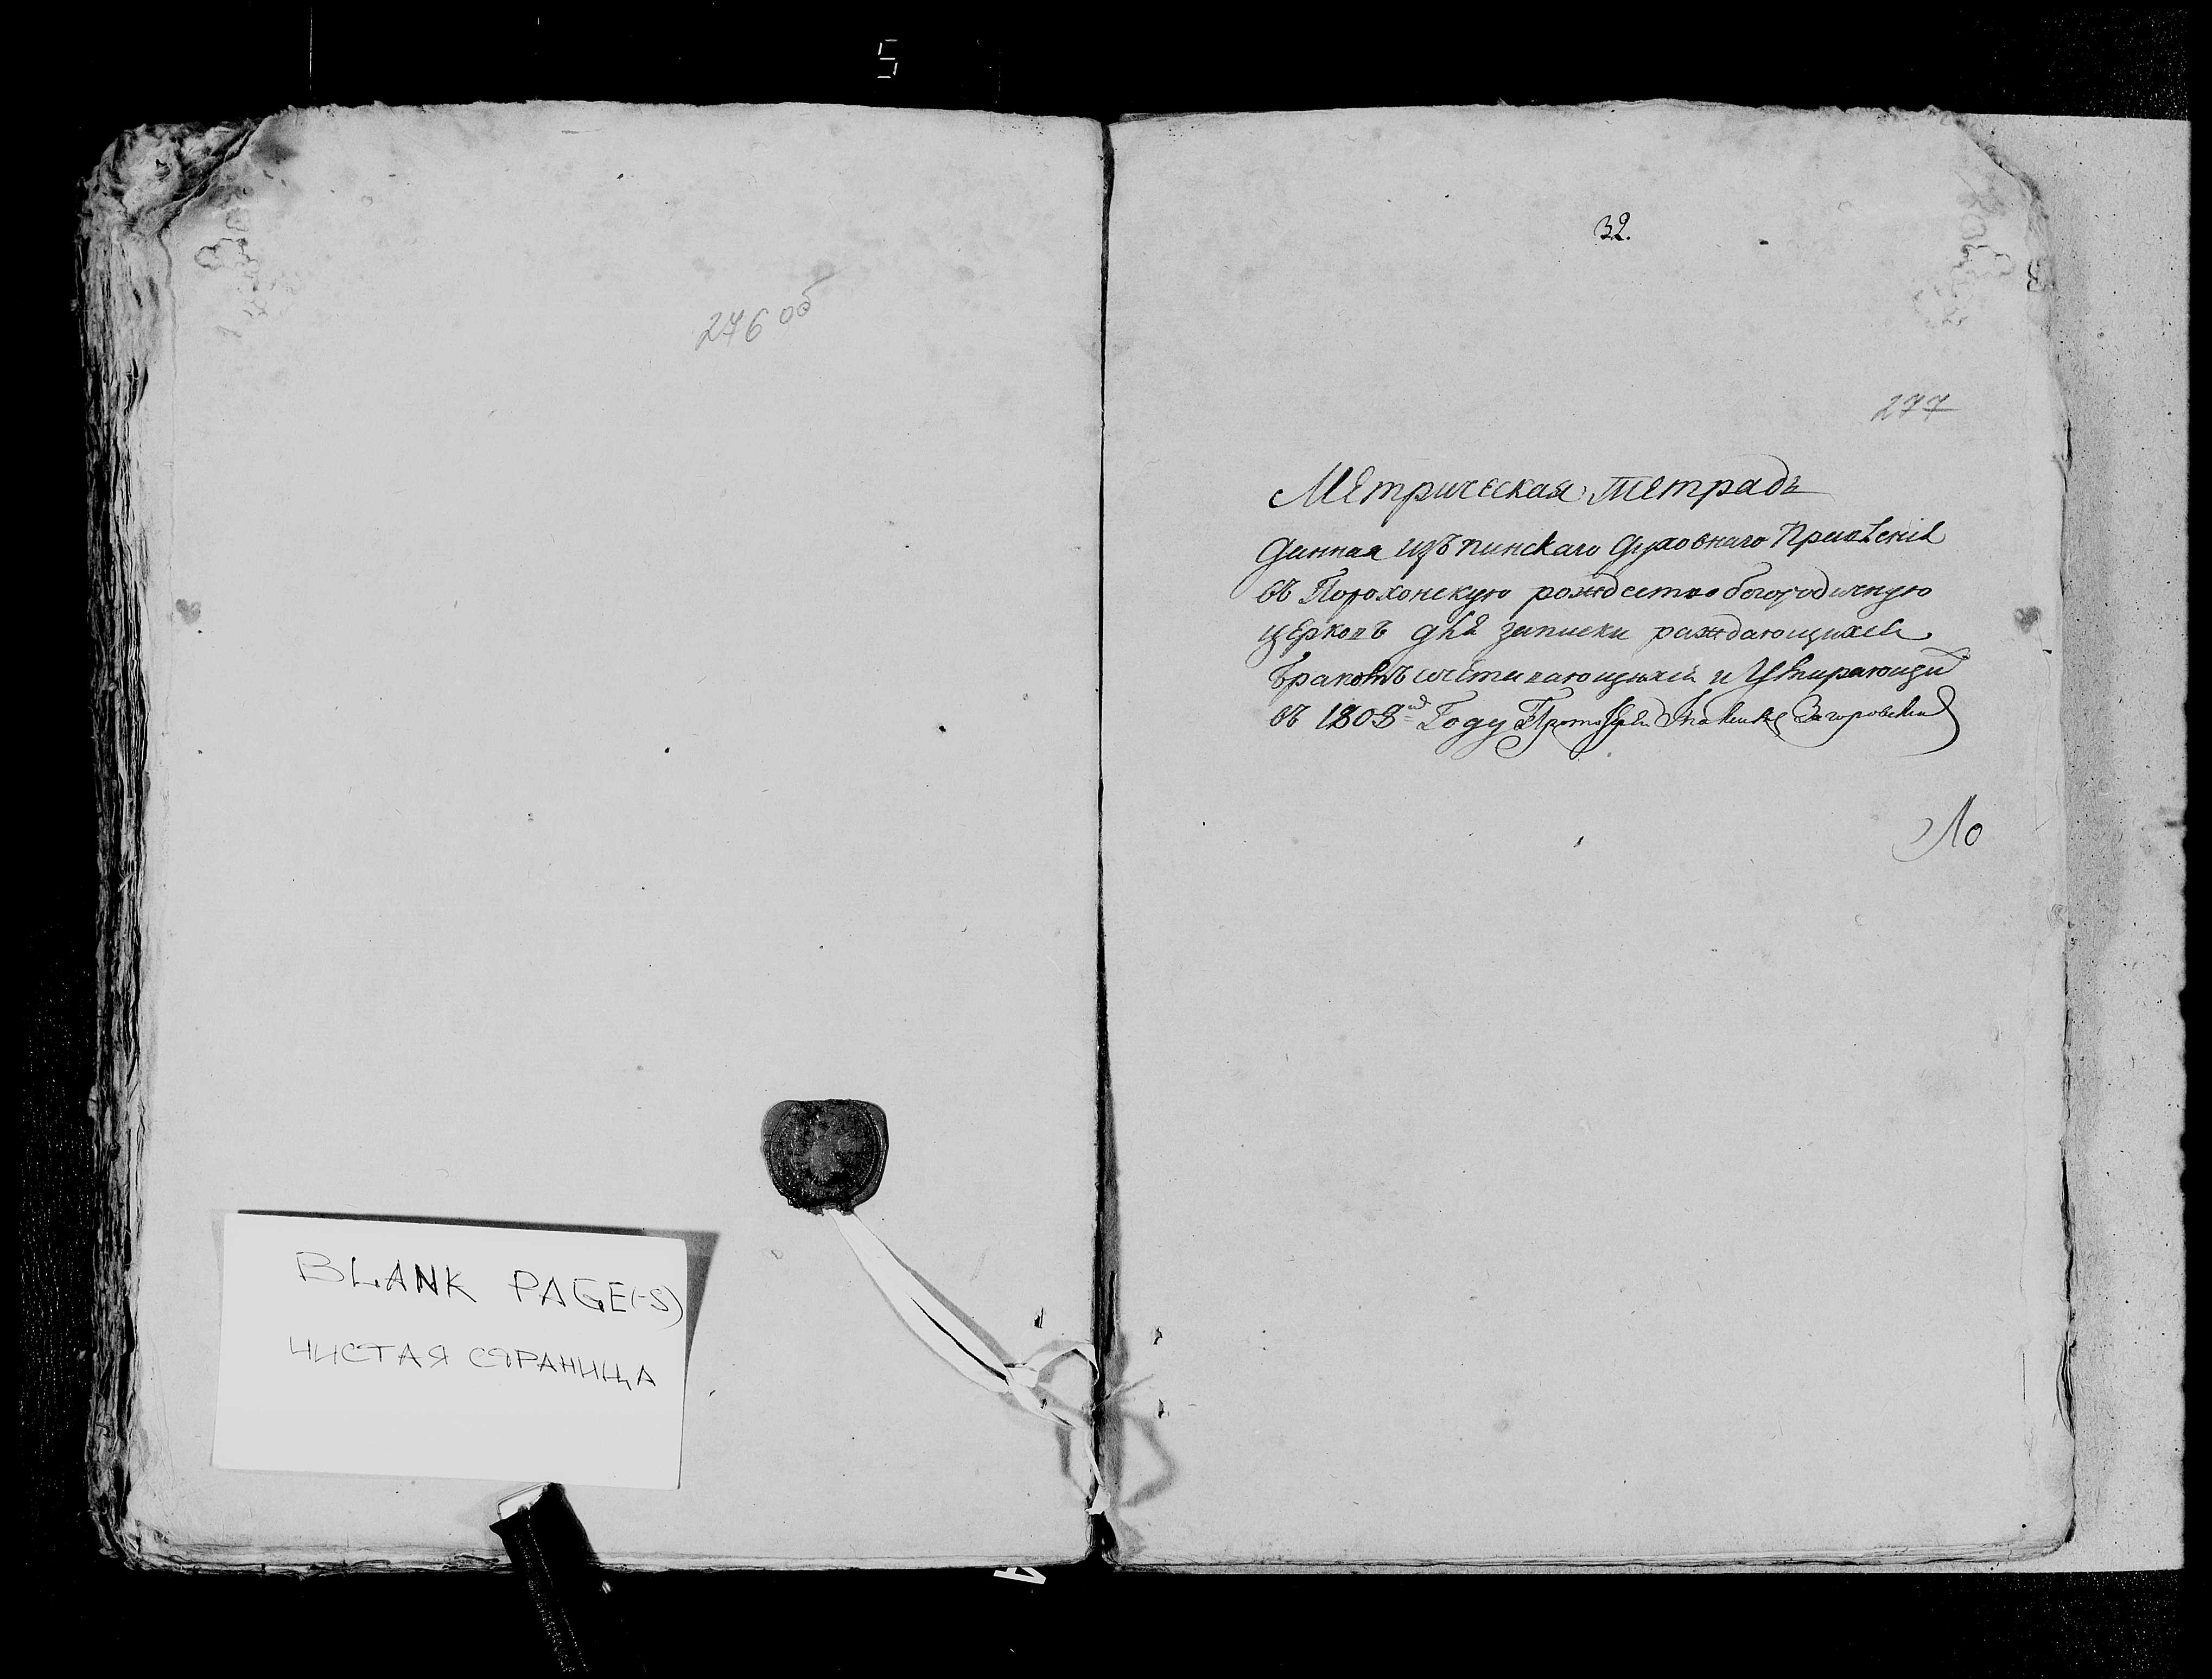 5
276 об
BLANK PAGE(-S)
ЧИСТАЯ СТРАНИЦА
32.
277
Метрическая тетрадь
Данная изъ пинскаго духовнаго Правленія
въ Порохонскую рождество богородичную
церковъ для записки раждающихся
бракомъ сочетавающихся и Умирающи
въ 1808 Году Протоіерей Загоровский
Ло